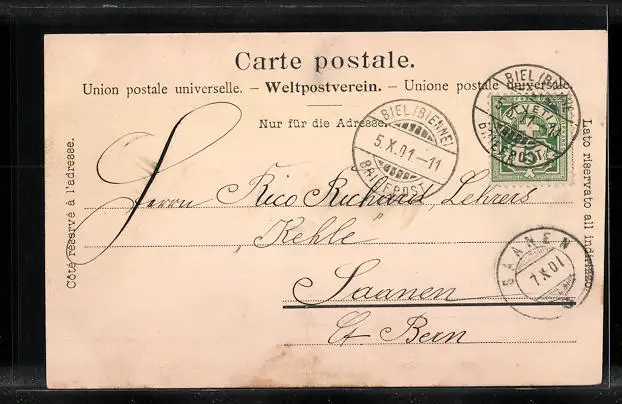 Carte postale.
Union postale universelle. – Weltpostverein. – Unione postale universale.
Nur für die Adresse.
BIEL (BIENNE)
5.X.01-11
BRIEFPOST
BIEL (BIENNE)
BRIEFPOST
HELVETIA
Côté réservé à l'adresse.
Lato riservato all indirizzo.
Herrn Rico Richard, Lehrers
"Kehle"
Saanen
Ct Bern
SAANEN
7.X.01